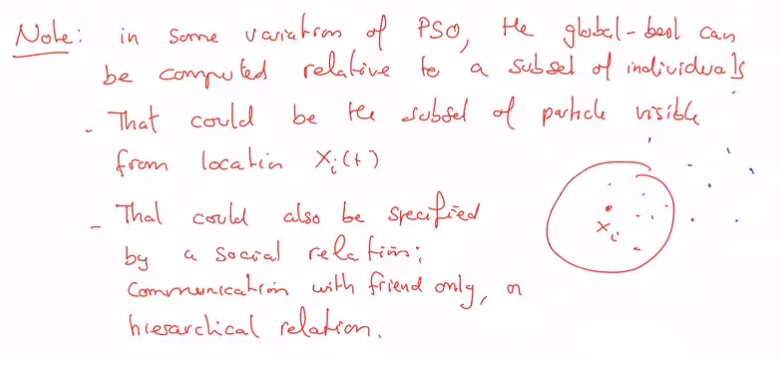 Note: in some variation of PSO, the global-best can
be computed relative to a subset of individuals
- That could be the subset of particle visible
from location Xi(t)
- That could also be specified
by a social relation:
communication with friend only, or
hierarchical relation.
xi